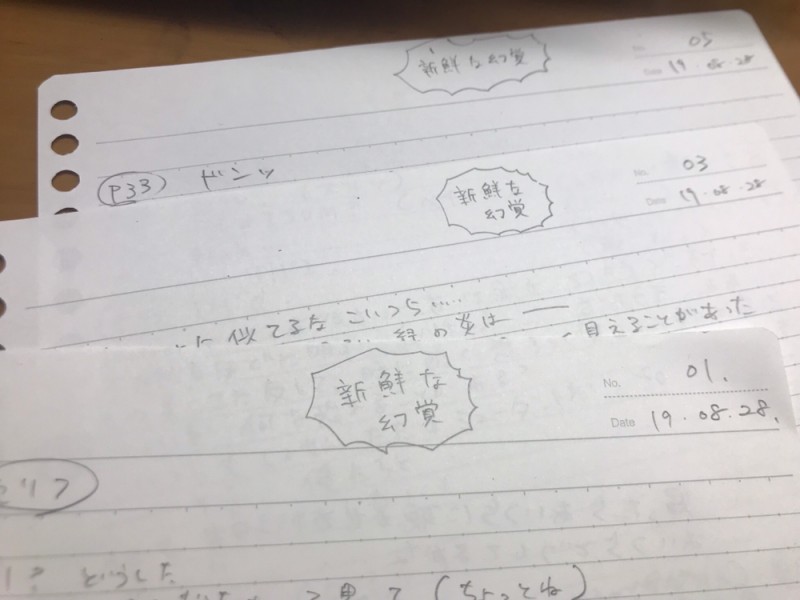 新鮮な幻覚
No. 05
Date 19.08.28
P33 ドンッ
新鮮な
幻覚
No. 03
Date 19.08.28
似てるな こいつら……
緑の炎は ――
見えることがあった
新鮮な
幻覚
No. 01.
Date 19.08.28.
リフ
? どうした
見て (ちょっとね)